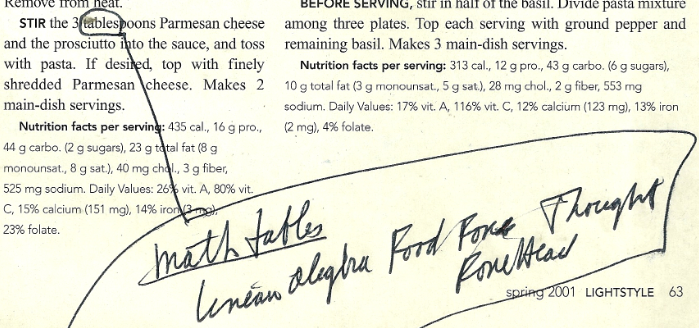 Remove from heat.
STIR the 3 tablespoons Parmesan cheese
and the prosciutto into the sauce, and toss
with pasta. If desired, top with finely
shredded Parmesan cheese. Makes 2
main-dish servings.
Nutrition facts per serving: 435 cal., 16 g pro.,
44 g carbo. (2 g sugars), 23 g total fat (8 g
monounsat., 8 g sat.), 40 mg chol., 3 g fiber,
525 mg sodium. Daily Values: 26% vit. A, 80% vit.
C, 15% calcium (151 mg), 14% iron (3 mg),
23% folate.
BEFORE SERVING, stir in half of the basil. Divide pasta mixture
among three plates. Top each serving with ground pepper and
remaining basil. Makes 3 main-dish servings.
Nutrition facts per serving: 313 cal., 12 g pro., 43 g carbo. (6 g sugars),
10 g total fat (3 g monounsat., 5 g sat.), 28 mg chol., 2 g fiber, 553 mg
sodium. Daily Values: 17% vit. A, 116% vit. C, 12% calcium (123 mg), 13% iron
(2 mg), 4% folate.
math tables
Food Thought
spring 2001 LIGHTSTYLE 63